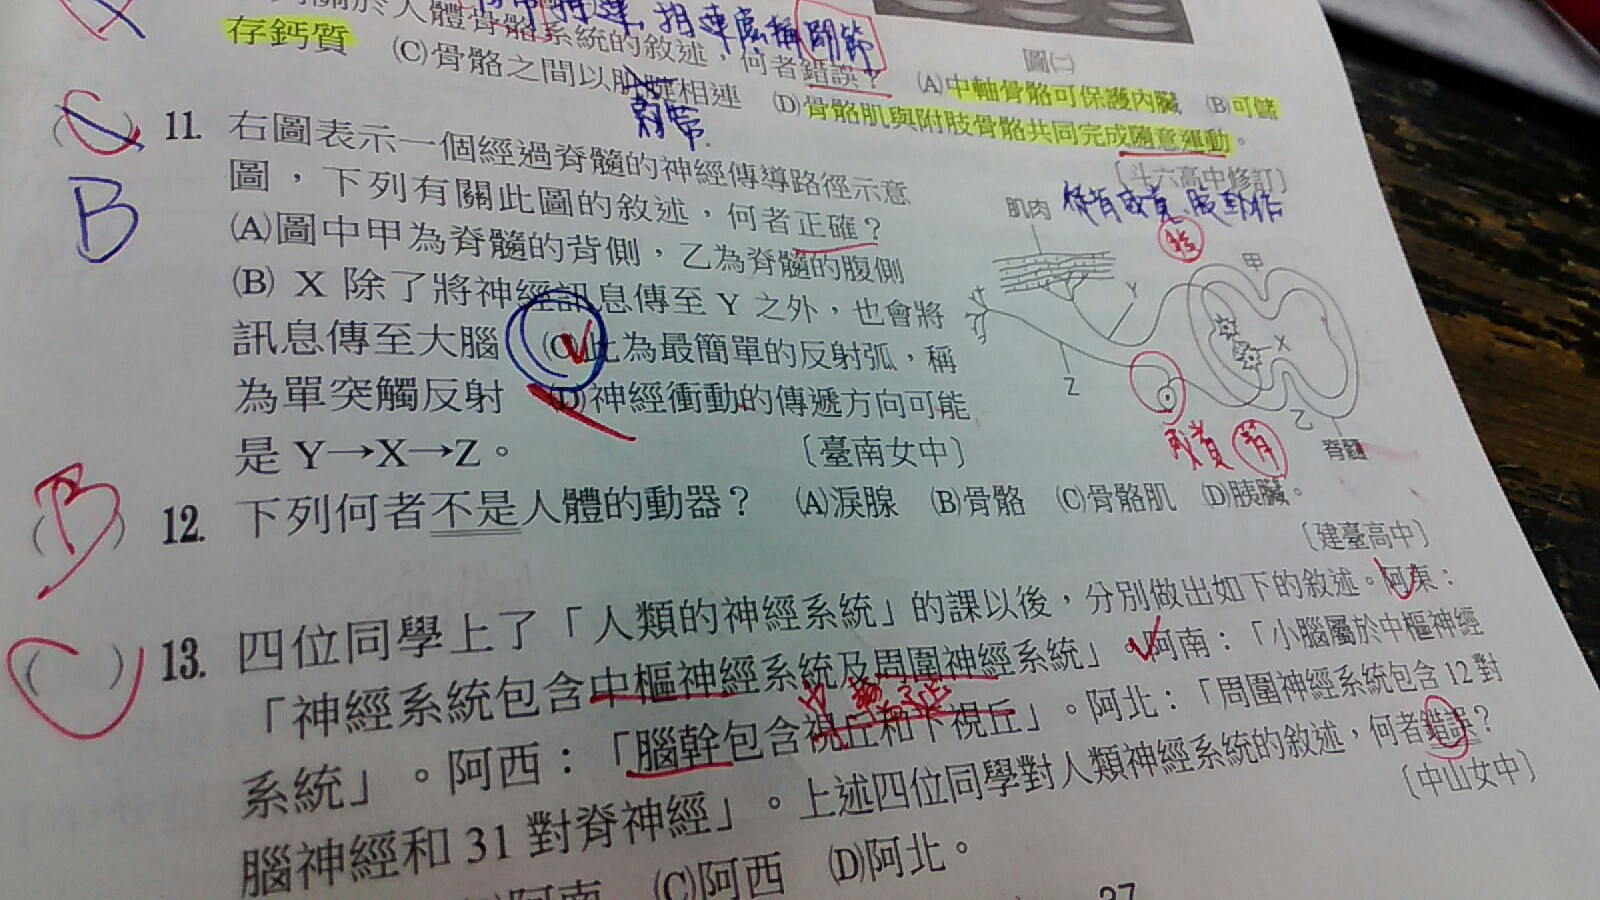 關於人體骨骼系統的敘述，何者錯誤？ (A)中軸骨骼可保護內臟 (B)可儲
存鈣質 (C)骨骼之間以肌腱相連 (D)骨骼肌與附肢骨骼共同完成隨意運動。
相連處稱關節
韌帶
圖㈡
〔斗六高中修訂〕
B
11. 右圖表示一個經過脊髓的神經傳導路徑示意
圖，下列有關此圖的敘述，何者正確？
(A)圖中甲為脊髓的背側，乙為脊髓的腹側
(B) X 除了將神經訊息傳至 Y 之外，也會將
訊息傳至大腦 (C)此為最簡單的反射弧，稱
為單突觸反射 (D)神經衝動的傳遞方向可能
是 Y→X→Z。 〔臺南女中〕
肌肉
Y
甲
X
Z
乙
脊髓
感負
背
(B) 12. 下列何者不是人體的動器？ (A)淚腺 (B)骨骼 (C)骨骼肌 (D)胰臟。
〔建臺高中〕
( ) 13. 四位同學上了「人類的神經系統」的課以後，分別做出如下的敘述。阿東：
「神經系統包含中樞神經系統及周圍神經系統」。阿南：「小腦屬於中樞神經
系統」。阿西：「腦幹包含視丘和下視丘」。阿北：「周圍神經系統包含 12 對
腦神經和 31 對脊神經」。上述四位同學對人類神經系統的敘述，何者錯誤？
〔中山女中〕
阿南 (C)阿西 (D)阿北。
27